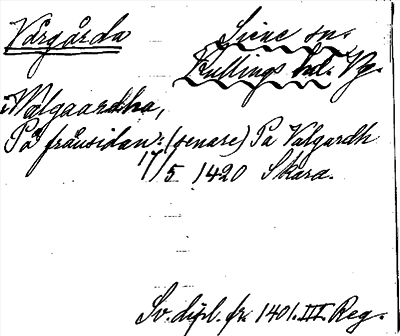 Vårgårda Siene sn.
Kullings hd. Vg.
Walgaardha,
På frånsidan: (senare) Pa Valgardh
17/5 1420 Skara.
Sv. dipl. fr. 1401. III. Reg.